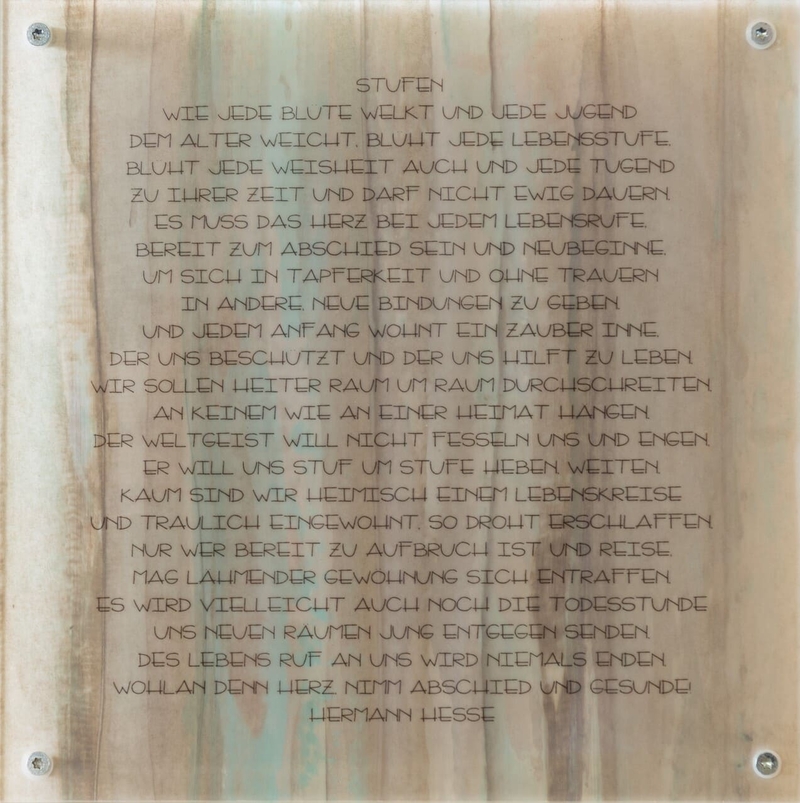 STUFEN
WIE JEDE BLUTE WELKT UND JEDE JUGEND
DEM ALTER WEICHT, BLUHT JEDE LEBENSSTUFE,
BLUHT JEDE WEISHEIT AUCH UND JEDE TUGEND
ZU IHRER ZEIT UND DARF NICHT EWIG DAUERN.
ES MUSS DAS HERZ BEI JEDEM LEBENSRUFE,
BEREIT ZUM ABSCHIED SEIN UND NEUBEGINNE,
UM SICH IN TAPFERKEIT UND OHNE TRAUERN
IN ANDERE, NEUE BINDUNGEN ZU GEBEN.
UND JEDEM ANFANG WOHNT EIN ZAUBER INNE,
DER UNS BESCHUTZT UND DER UNS HILFT ZU LEBEN.
WIR SOLLEN HEITER RAUM UM RAUM DURCHSCHREITEN,
AN KEINEM WIE AN EINER HEIMAT HANGEN,
DER WELTGEIST WILL NICHT FESSELN UNS UND ENGEN,
ER WILL UNS STUF UM STUFE HEBEN, WEITEN.
KAUM SIND WIR HEIMISCH EINEM LEBENSKREISE
UND TRAULICH EINGEWOHNT, SO DROHT ERSCHLAFFEN,
NUR WER BEREIT ZU AUFBRUCH IST UND REISE,
MAG LAHMENDER GEWOHNUNG SICH ENTRAFFEN.
ES WIRD VIELLEICHT AUCH NOCH DIE TODESSTUNDE
UNS NEUEN RAUMEN JUNG ENTGEGEN SENDEN,
DES LEBENS RUF AN UNS WIRD NIEMALS ENDEN
WOHLAN DENN HERZ NIMM ABSCHIED UND GESUNDE!
HERMANN HESSE